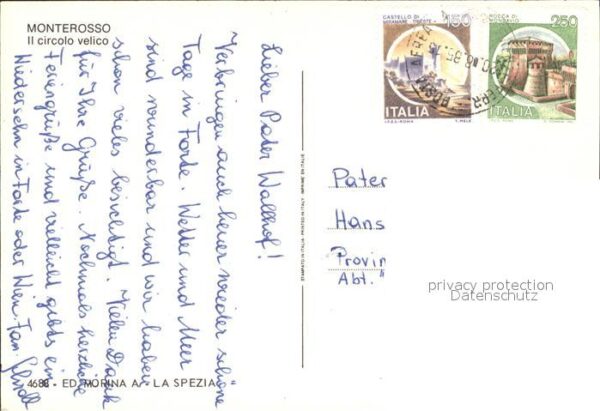 MONTEROSSO
Il circolo velico
Lieber Pater Wallhof!
Verbringen auch heuer wieder schöne
Tage in Forte. Wetter und Meer
sind wunderbar und wir haben
schon vieles besichtigt. Vielen Dank
für Ihre Grüße. Nochmals herzliche
Feriengrüße und vielleicht gibts ein
Wiedersehn in Forte oder Wien. Fam.
4686 - ED. MORINA A. - LA SPEZIA
STAMPATO IN ITALIA - PRINTED IN ITALY - IMPRIMÉ EN ITALIE
CASTELLO DI
MIRAMARE TRIESTE
150
ITALIA
I.P.Z.S. - ROMA
ROCCA DI
MONDAVIO
250
ITALIA
Pater
Hans
Provin
Abt."
privacy protection
Datenschutz